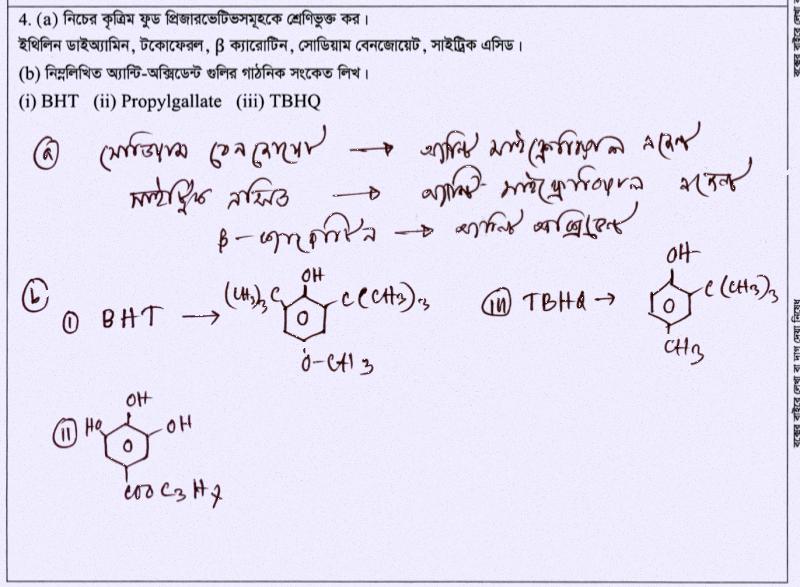 4. (a) নিচের কৃত্রিম ফুড প্রিজারভেটিভসমূহকে শ্রেণিভুক্ত কর।
ইথিলিন ডাইঅ্যামিন, টকোফেরল, β ক্যারোটিন, সোডিয়াম বেনজোয়েট, সাইট্রিক এসিড।
(b) নিম্নলিখিত অ্যান্টি-অক্সিডেন্ট গুলির গাঠনিক সংকেত লিখ।
(i) BHT (ii) Propylgallate (iii) TBHQ
(a) সোডিয়াম → অ্যান্টি মাইক্রোবিয়াল এজেন্ট
সাইট্রিক এসিড → অ্যান্টি- মাইক্রোবিয়াল এজেন্ট
β - ক্যারোটিন → অ্যান্টি অক্সিডেন্ট
(b) (i) BHT → (CH3)3 C OH C(CH3)3 O-CH3
(iii) TBHQ → OH C(CH3)3 CH3
(ii) HO OH OH COO C3H7